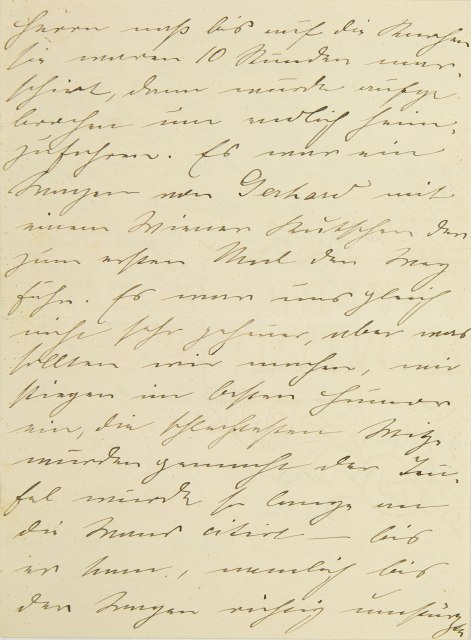 Herren naß bis auf die Knochen
sie waren 10 Stunden mar-
schirt, dann wurde aufge
brochen um endlich heim-
zufahren. Es war ein
Wagen von Gerhard mit
einem Wiener Kutscher der
zum ersten Mal den Weg
fuhr. Es war uns gleich
nicht sehr geheuer, aber was
sollten wir machen, wir
stiegen im besten Humor
ein, die schlechtesten Witze
wurden gemacht der Teu-
fel wurde so lange an
die Wand citirt — bis
er kam, nemlich bis
der Wagen richtig umstürzte